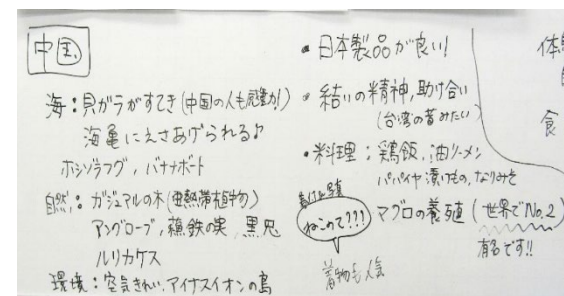 中国
海：貝ガラがすてき(中国の人も魅力!)
海亀にえさあげられる♪
ホシゾラフグ，バナナボート
自然：ガジュマルの木(亜熱帯植物)
アングローブ，蘇鉄の実，黒兎
ルリカケス
環境：空気きれい，アイナスイオンの島
・日本製品が良い!
・結いの精神，助け合い
(台湾の昔みたい)
・料理：鶏飯，油ソーメン
パパイヤ漬けもの，なりみそ
ねこのて???
マグロの養殖(世界でNo.2)
有名です!!
着物も人気
体
食